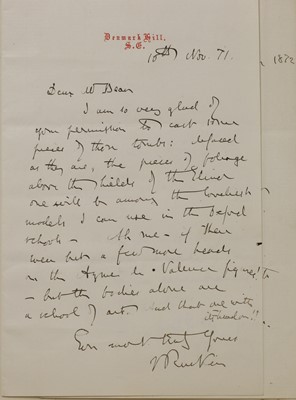 Denmark Hill,
S.E.
18th Nov. 71.
1872
Dear Mr Dean
I am so very glad of
your permission to cast some
pieces of those tombs: defaced
as they are, the pieces of foliage
above the shields of the Elmer
one will be among the loveliest
models I can use in the Oxford
schools - Ah me - if there
were but a few more heads
in the Aymer de Valence figures!
- but the bodies alone are
a school of art. and that one with
its head on!!
Ever most truly Yours
J Ruskin